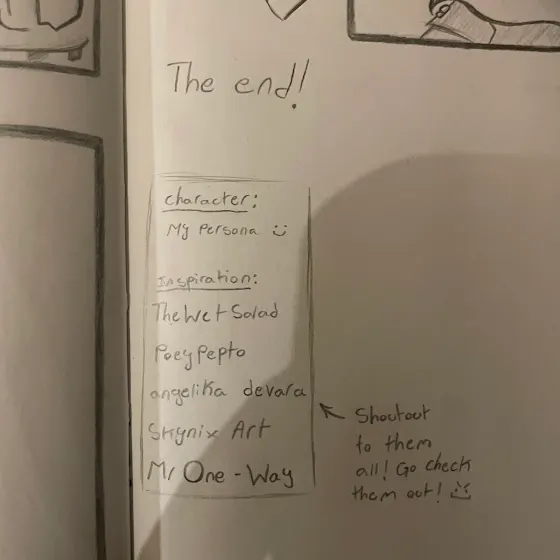 The end!
character:
My Persona
Inspiration:
TheWetSalad
PoeyPepto
angelika devara
Skynix Art
Mr One-Way
Shoutout
to them
all! Go check
them out!